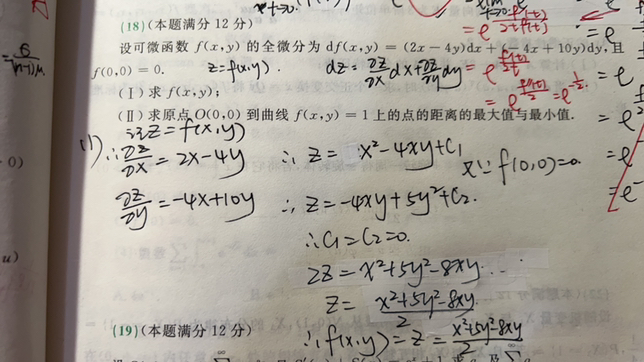 (18)(本题满分 12 分)
设可微函数 f(x,y) 的全微分为 df(x,y) = (2x − 4y)dx + (− 4x + 10y)dy, 且
f(0,0) = 0. z=f(x,y). dz = ∂z/∂x dx + ∂z/∂y dy
(Ⅰ) 求 f(x,y);
(Ⅱ) 求原点 O(0,0) 到曲线 f(x,y) = 1 上的点的距离的最大值与最小值.
设z=f(x,y)
(1) ∴ ∂z/∂x = 2x−4y ∴ z = x²−4xy+C₁
又∵ f(0,0)=0.
∂z/∂y = −4x+10y ∴ z = −4xy+5y²+C₂.
∴ C₁=C₂=0.
2z = x²+5y²−8xy...
z = x²+5y²−8xy / 2
(19)(本题满分 12 分)
∴ f(x,y) = z = x²+5y²−8xy / 2